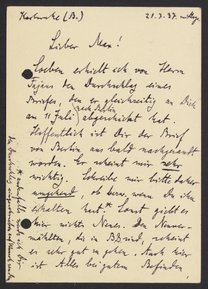 Karlsruhe (B.) 21.7.37. mittags
Lieber Max!
Soeben erhielt ich von Herrn
den Durchschlag eines
Briefes, den er gleichzeitig an Dich
nach Berlin
am 11. Juli abgeschickt hat.
Hoffentlich ist Dir der Brief
von Berlin aus bald nachgesandt
worden. Er scheint mir sehr
wichtig. Schreibe mir bitte daher
umgehend, ob bzw. wann Du ihn
erhalten hast.* Sonst gibt es
hier nichts Neues. Den Neuver-
mählten, die in sind, scheint
es sehr gut zu gehen. Auch hier
ist Alles bei gutem Befinden,